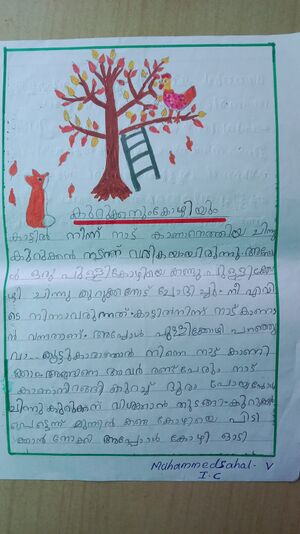 കുറുക്കനും കോഴിയും
കാട്ടിൽ നിന്ന് നാട് കാണാനെത്തിയ ചിന്നു
കുറുക്കൻ നടന്ന് വരികയായിരുന്നു. അപ്പോ
ൾ ഒരു പുള്ളികോഴിയെ കണ്ടു പുള്ളിക്കോ
ഴി ചിന്നു കുറുക്കനോട് ചോദിച്ചു. നീ എവി
ടെ നിന്നാവരുന്നത്. കാട്ടിൽനിന്ന് നാട് കാണാ
ൻ വന്നതാണ്. അപ്പോൾ പുള്ളിക്കോഴി പറഞ്ഞു
വാ കൂട്ടുകാരാ ഞാൻ നിന്നെ നാട് കാണി
ക്കാം അങ്ങനെ അവർ രണ്ട് പേരും നാട്
കാണാനിറങ്ങി കുറച്ച് ദൂരം പോയപ്പോൾ
ചിന്നുകുറുക്കന് വിശക്കാൻ തുടങ്ങി. കുറുക്കൻ
പെട്ടെന്ന് മുന്നിൽ കണ്ട കോഴിയെ പിടി
ക്കാൻ നോക്കി അപ്പോൾ കോഴി ഓടി
Muhammed Sahal. V
I. C